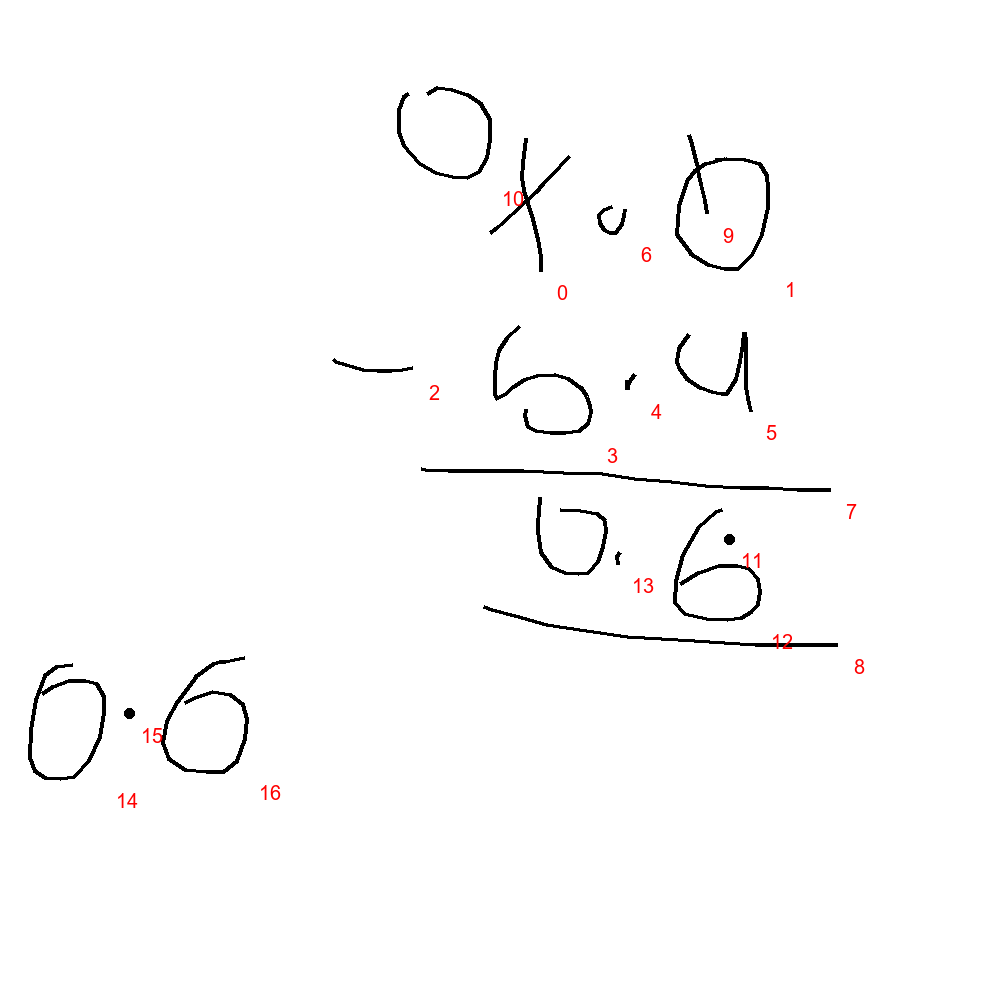 0
1.0
10 6 9
0 1
- 5.4
2 4 5
3
7
0.6
13 11
12 8
0.6
15
14 16